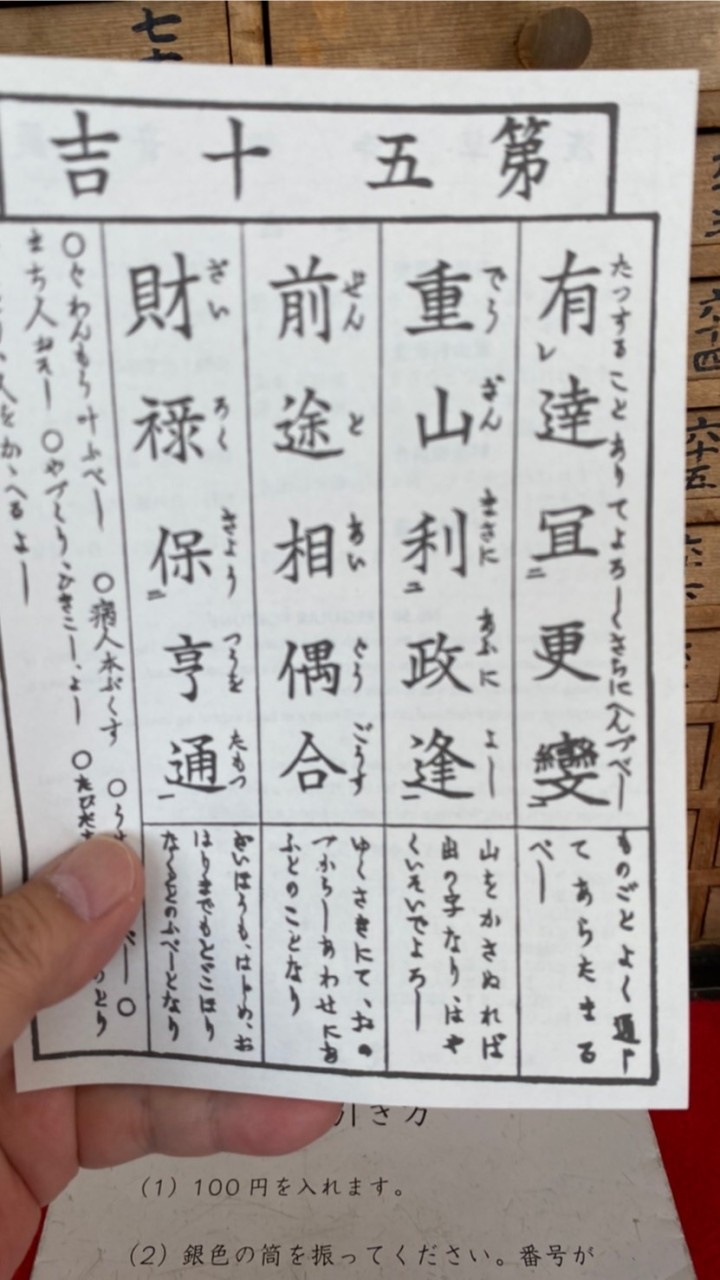 第五十吉
有達冝更變
たつすることありてよろしくさらにへんずべし
ものごとよく通じ
てあらたまる
べし
重山利政逢
でう ざん まさに あふに よし
山をかさぬれば
出の字なり、はや
くいそいでよろし
前途相偶合
ぜん と あい ぐう ごうす
ゆくさきにて、おの
づからしあわせにあ
ふとのことなり
財禄保亨通
ざい ろく きよう つうを たもつ
ざいほうも、はじめ、お
はりまでもとどこほり
なくととのふべしとなり
○病人本ぶくす ○う
○ぐわんもう叶ふべし
べし ○
まち人おそし ○やづくり、ひきこし、よし ○たびだち
のとり
人をかゝへるよし
七
六十四
六十五
引き方
(1) 100円を入れます。
(2) 銀色の筒を振ってください。番号が